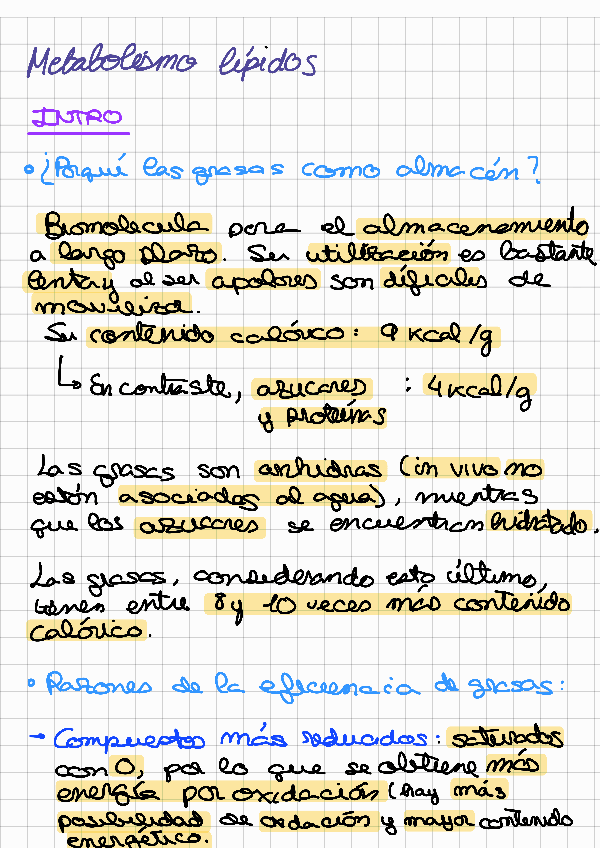 Metabolismo lípidos
INTRO
• ¿Porqué las grasas como almacén?
Biomolecula para el almacenamiento
a largo plazo. Su utilización es bastante
lenta y al ser apolares son difíciles de
movilizar.
Su contenido calórico: 9 kcal/g
↳ En contraste, azucares : 4 kcal/g
y proteínas
Las grasas son anhidras (in vivo no
están asociadas al agua), mientras
que los azucares se encuentran hidratado.
Las grasas, considerando esto último,
tienen entre 8 y 10 veces más contenido
calórico.
• Razones de la eficiencia de grasas:
→ Compuestos más reducidos: saturados
con O, por lo que se obtiene más
energía por oxidación (hay más
posibilidad de oxidación y mayor contenido
energético.